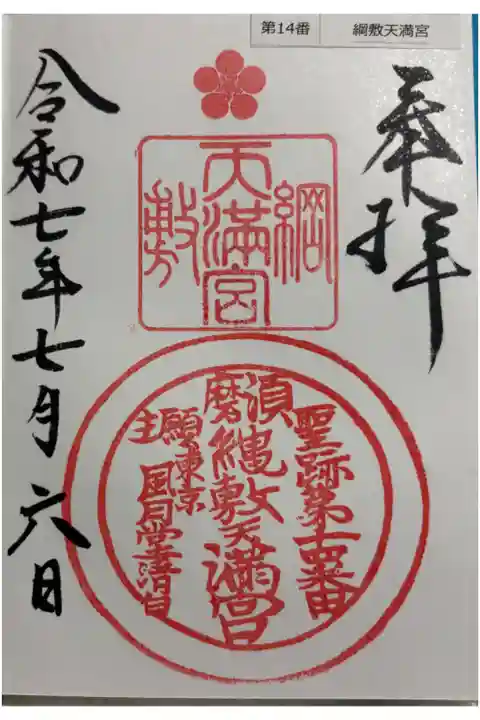 第14番
綱敷天満宮
奉拝
綱
天満宮
敷
聖跡第十四番
須磨
縄敷天満宮
願主
東京
令和七年七月六日